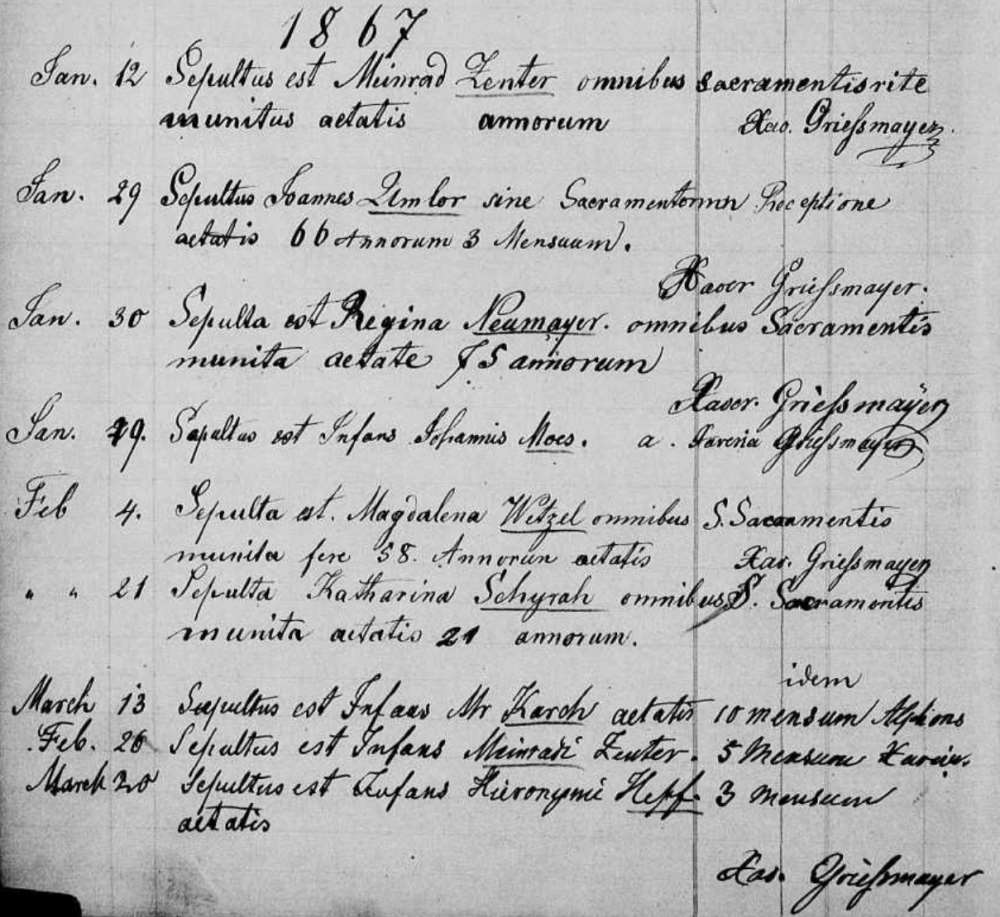 1867
Jan. 12 Sepultus est Meinrad Zenter omnibus sacramentis rite
munitus aetatis annorum Xav. Griessmayer.
Jan. 29 Sepultus Joannes Umlor sine Sacramentorum Receptione
aetatis 66 Annorum 3 Mensuum.
Xaver Griessmayer.
Jan. 30 Sepulta est Regina Neumayer. omnibus Sacramentis
munita aetate 75 annorum
Xaver. Griessmayer
Jan. 29. Sepultus est Infans Johannis Moes. a. Griessmayer
Feb 4. Sepulta est. Magdalena Wetzel omnibus S. Sacramentis
munita fere 58. Annorum aetatis Xav. Griessmayer
" " 21 Sepulta Katharina Schyrah omnibus S. Sacramentis
munita aetatis 21 annorum.
idem
March 13 Sepultus est Infans Mr Karch aetatis 10 mensum Alphons
Feb. 26 Sepultus est Infans Meinradi Zenter. 5 Mensum
March 20 Sepultus est Infans Hieronymi Hepf. 3 mensum
aetatis
Xav. Griessmayer